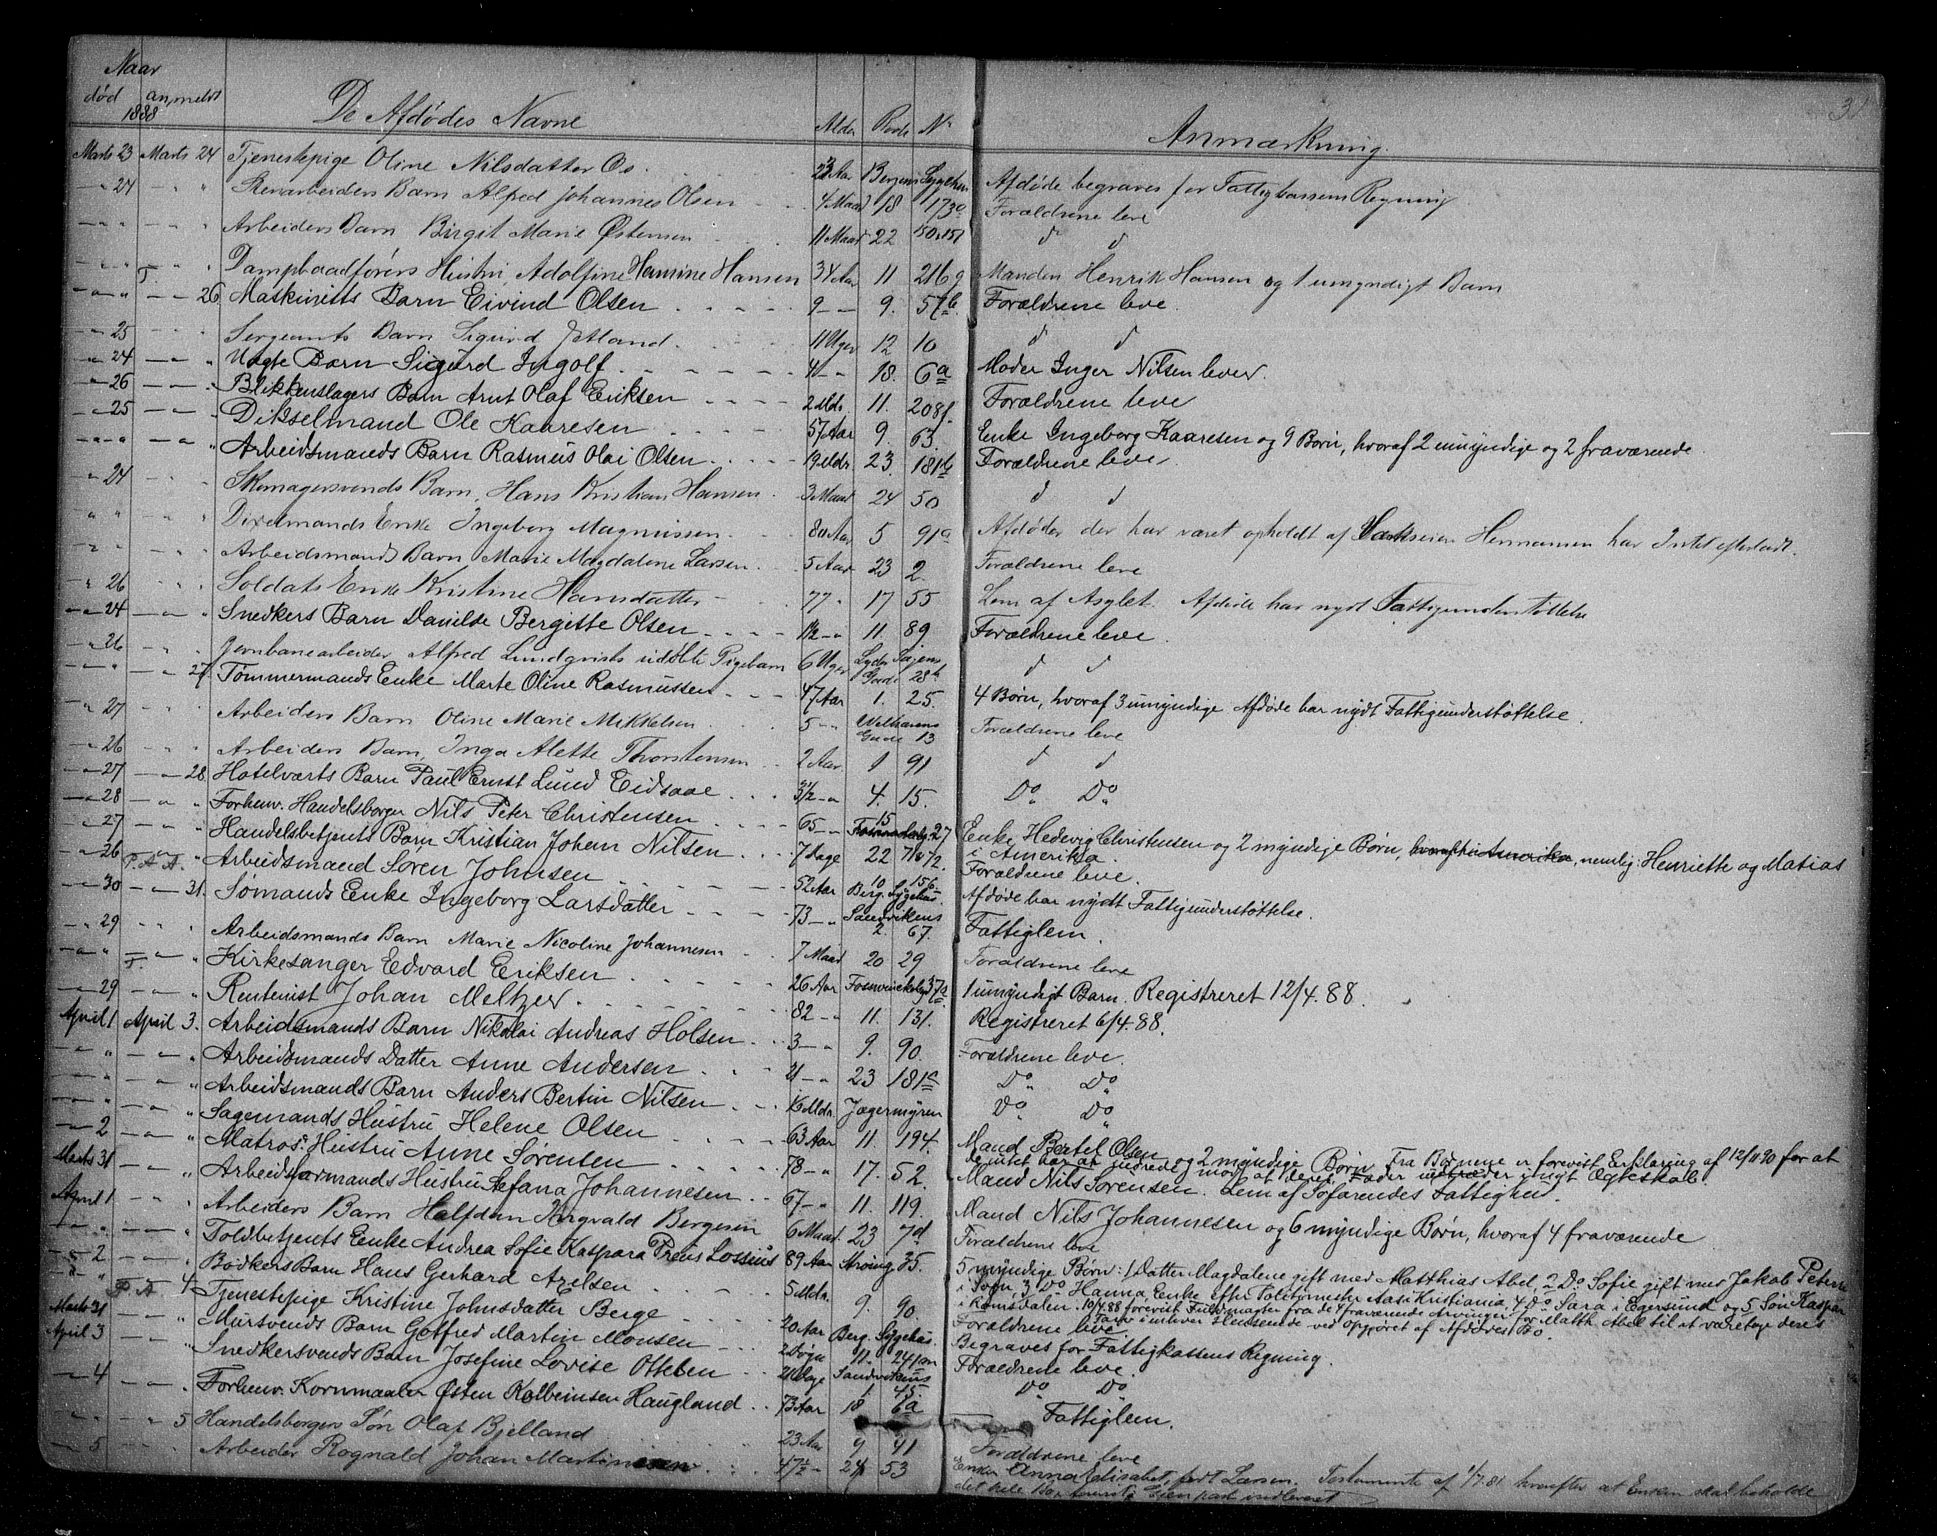 31
Naar
død anmeldt De Afdødes Navne Alder Rode No Anmærkning.
1888
Marts 23 Marts 24 Tjenestepige Oline Nilsdatter Os 23 Aar Bergens Sygehus Afdøde begraves for Fattigkassens Regning
" 24 " " Renarbeiders Barn Alfred Johannes Olsen 4 Maad 18 173 Forældrene leve
" " " " Arbeiders Barn Birgit Marie Østensen 11 Maad 22 150 151 d d
" " T. " Dampbaadførers Hustru, Adolfine Hansine Hansen 34 Aar 11 216 g Manden Henrik Hansen og 1 umyndigt Barn
" " " 26 Maskinists Barn Eivind Olsen 9 " 9. 57b Forældrene leve.
" 25 " " Sergeants Barn Sigurd 11 Uger 12 10 d d
" 24 " " Uægte Barn Sigurd Ingolf 4 " 18. 6a Moder Inger Nilsen lever.
" 26 " " Blikkenslagers Barn Arnt Olaf Eriksen 2 Mdr 11. 208f Forældrene leve
" 25 " " Dikselmand Ole Kaaresen 57 Aar 9. 63. Enke Ingeborg Kaaresen og 9 Børn, hvoraf 2 umyndige og 2 fraværende
" " " " Arbeidsmands Barn Rasmus Olai Olsen 19 Mdr. 23 181b Forældrene leve.
" 24 " " Skomagersvends Barn, Hans Kristian Hansen 3 Maad 24 50 d d
" " " " Dixelmands Enke Ingeborg Magnussen 80 Aar 5 91a Afdøde, der har været opholdt af Hermansen har Intet efterladt.
" " " " Arbeidsmands Barn Marie Magdalene Larsen 5 Aar 23 2 Forældrene leve
" 26 " " Soldats Enke Kristine Hansdatter 77 " 17 55 Lem af Asylet. Afdøde har nydt Fattigunderstøttelse
" 24 " " Snedkers Barn Danilde Bergitte Olsen 1½ " 11. 89 Forældrene leve.
" 26 " " Jernbanearbeider Alfred Lundqvists udøbte Pigebarn 6 Uger Lyder Sagens Gade 28b d d
" " " 27 Tømmermands Enke Marte Oline Rasmussen 47 Aar 1. 25. 4 Børn, hvoraf 3 umyndige Afdøde har nydt Fattigunderstøttelse.
" 27 " " Arbeiders Barn Oline Marie Mikkelsen 5 " Welhavens Gade 13 Forældrene leve
" 26 " " Arbeiders Barn, Inga Alette Thorstensen 2 Aar 1 91 d d
" 27 " 28 Hotelværts Barn Paul Ernst Lund Eidsaae 3½ " 4. 15. Do Do
" 28 " " Forhenv. Handelsborger Nils Peter Christensen 65 " 15 27 Enke Hedevig Christensen og 2 myndige Børn, hvoraf 1 i Amerika, nemlig: Henriette og Matias i Amerika.
" 27 " " Handelsbetjents Barn Kristian Johan Nilsen 7 Dage 22 7 Forældrene leve.
" 26 F. A. A. " Arbeidsmand Søren Johnsen 52 Aar 10 156 Berg. Sygehus Afdøde har nydt Fattigunderstøttelse.
" 30 " 31. Sømands Enke Ingeborg Larsdatter 73 " Sandvikens 2 67. Fattiglem.
" 29 " " Arbeidsmands Barn Marie Nicoline Johannesen 7 Maad 20 29 Forældrene leve
" " F. " Kirkesanger Edvard Eriksen 26 Aar Fosswinckelsgd 37a 1 umyndigt Barn. Registreret 12/4.88.
" 29 " " Rentenist Johan Meltzer 82 " 11. 131. Registreret 6/4.88.
April 1 April 3. Arbeidsmands Barn Nikolai Andreas Holsen 3 " 9. 90. Forældrene leve.
" " " " Arbeidsmands Datter Anne Andersen 21 " 23 181c Do Do
" " " " Arbeidsmands Barn Anders Bertin Nilsen 16 Mdr. Jægermyren Do Do
" " " " Sagemands Hustru Helene Olsen 63 Aar 11. 194. Mand Bertel Olsen og 2 myndige Børn Fra Børnene er forevist Erklæring af 12/11 90 for at de intet har at indvende mod at deres Fader indtræder i nyt Ægteskab.
" 2 " " Matros. Hustru Anne Sørensen 78 " 17. 52. Mand Nils Sørensen. Lem af Søfarendes Fattighus.
Marts 31 " " Arbeidsformands Hustru Stefana Johannesen 67 " 11. 119. Mand Nils Johannesen og 6 myndige Børn, hvoraf 4 fraværende
April 1 " " Arbeiders Barn Halfdan Ingvald Bergesen 6 Maad 23 7d Forældrene leve
" " " " Toldbetjents Enke Andrea Sofie Kaspara Preus Lossius 89 Aar 35. 5 myndige Børn: 1 Datter Magdalene gift med Matthias Abel, 2 Do Sofie gift med Jakob i Sogn, 3 Do Hanna, Enke efter Politimester Aas i Kristiania, 4 Do Sara i Egersund og 5 Søn Kaspar i Romsdalen. 10/4.88 forevist Fuldmagter fra de 4 fraværende Arvinger for Matth. Abel til at varetage deres Tarv i enhver Henseende ved Opgjøret af Afdødes Bo.
" 2 " " Bødkers Barn Hans Gerhard Axelsen 5 Mdr. 9. 90. Forældrene leve.
" " F. A 4 Tjenestepige Kristine Johnsdatter Berge 20 Aar Berg. Sygehus. Begraves for Fattigkassens Regning.
Marts 31 Mursvends Barn Gotfred Martin Monsen 2 Døgn 11. 241 Forældrene leve.
April 3 " Snedkersvends Barn Josefine Lovise Ottesen 21 Dage Sandvikens 1. 45. Do Do
" 4 " " Forhenv. Kornmaaler Østen Kolbeinsen Haugland 73 Aar 18 6a Fattiglem.
" " " 5 Handelsborgers Søn Olaf Bjelland 23 Aar 9 41 Forældrene leve
" 5 Arbeider Ragnald Johan Martinsen 47½ " 24 53 Enken Anna Elisabet, født Larsen. Testamente af 1/7.81 hvorefter at Enken skal beholde det hele Bo, Gjenpart indleveret